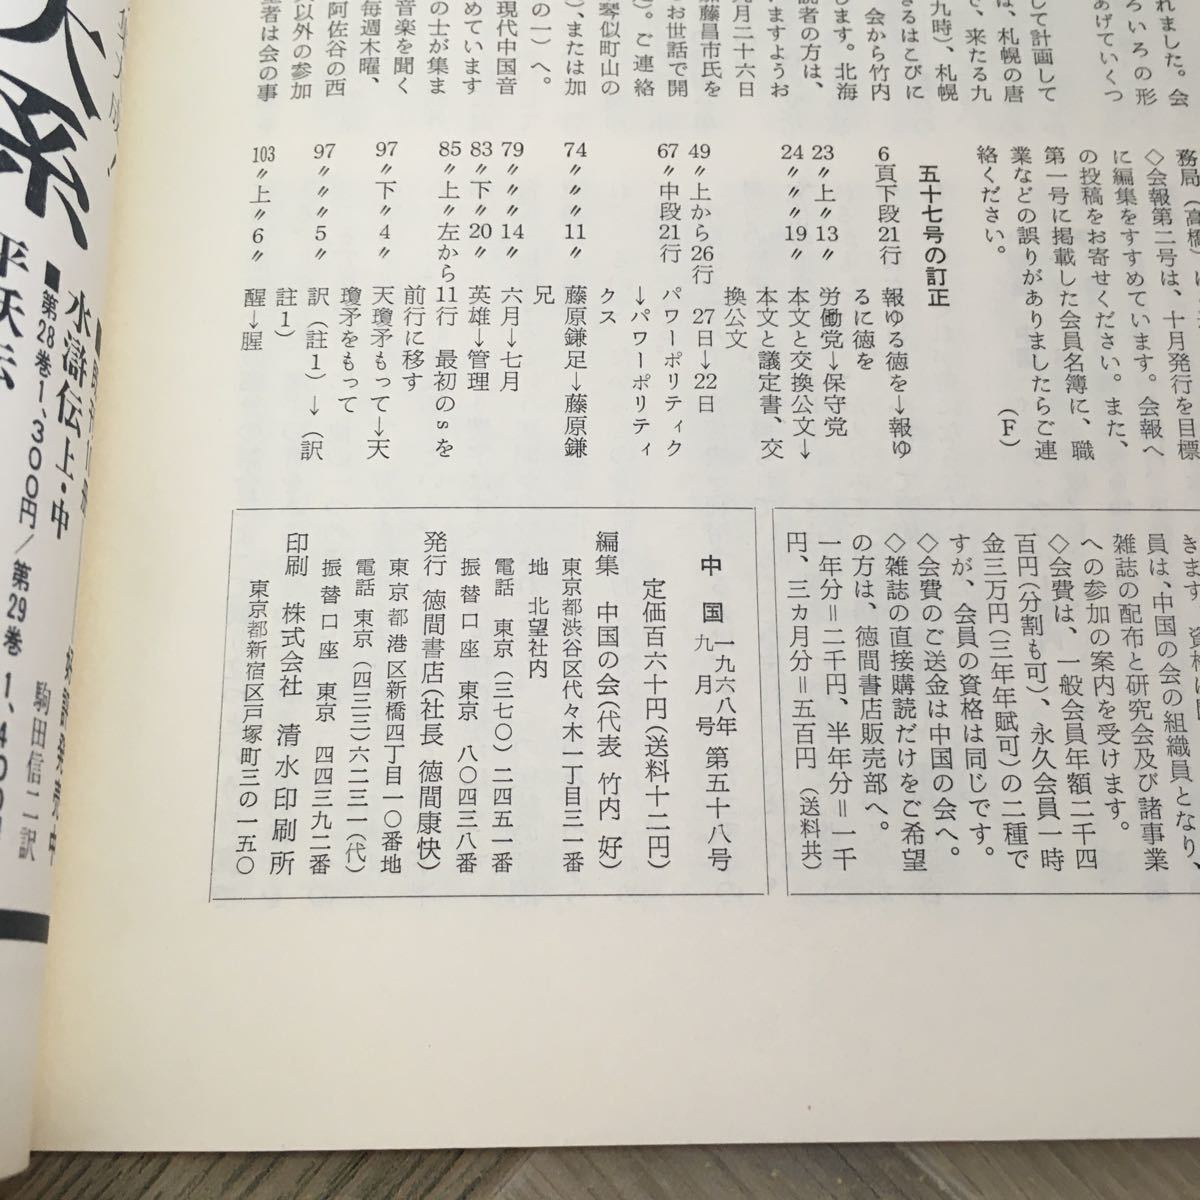 れました。会
ろいろの形
あげていくつ
して計画して
は、札幌の唐
で、来たる九
九時)、札幌
きるはこびに
会から竹内
します。北海
読者の方は、
ますようお
九月二十六日
加藤昌市氏を
お世話で開
)。ご連絡
琴似町山の
)、または加
の一)へ。
現代中国音
めています
の士が集ま
音楽を聞く
毎週木曜、
阿佐谷の西
以外の参加
者は会の事
務局(高橋)に
◇会報第二号は、十月発行を目標
に編集をすすめています。会報へ
の投稿をお寄せください。また、
第一号に掲載した会員名簿に、職
業などの誤りがありましたらご連
絡ください。 (F)
五十七号の訂正
6頁下段21行 報ゆる徳を→報ゆ
るに徳を
23〃上〃13〃 労働党→保守党
24〃〃〃19〃 本文と交換公文→
本文と議定書、交
換公文
49〃上から26行 27日→22日
67〃中段21行 パワーポリティク
→パワーポリティ
クス
74〃〃〃11〃 藤原鎌足→藤原鎌
兄
79〃〃〃14〃 六月→七月
83〃下〃20〃 英雄→管理
85〃上〃左から11行 最初のsを
前行に移す
97〃下〃4〃 天瓊矛もって→天
瓊矛をもって
97〃〃〃5〃 訳(註1)→(訳
註1)
103〃上〃6〃 醒→腥
きます。資格は
員は、中国の会の組織員となり、
雑誌の配布と研究会及び諸事業
への参加の案内を受けます。
◇会費は、一般会員年額二千四
百円(分割も可)、永久会員一時
金三万円(三年年賦可)の二種で
すが、会員の資格は同じです。
◇会費のご送金は中国の会へ。
◇雑誌の直接購読だけをご希望
の方は、徳間書店販売部へ。
一年分＝二千円、半年分＝一千
円、三カ月分＝五百円 (送料共)
中国 一九六八年九月号 第五十八号
定価百六十円(送料十二円)
編集 中国の会(代表 竹内 好)
東京都渋谷区代々木一丁目三一番
地 北望社内
電話 東京(三七〇)二四五一番
振替口座 東京 八〇四三八番
発行 徳間書店(社長 徳間康快)
東京都港区新橋四丁目一〇番地
電話 東京(四三三)六二三一(代)
振替口座 東京 四四三九二番
印刷 株式会社 清水印刷所
東京都新宿区戸塚町三の一五〇
■水滸伝上・中
第28巻1,300円/第29巻1,400円
駒田信二訳
■平妖伝
大系